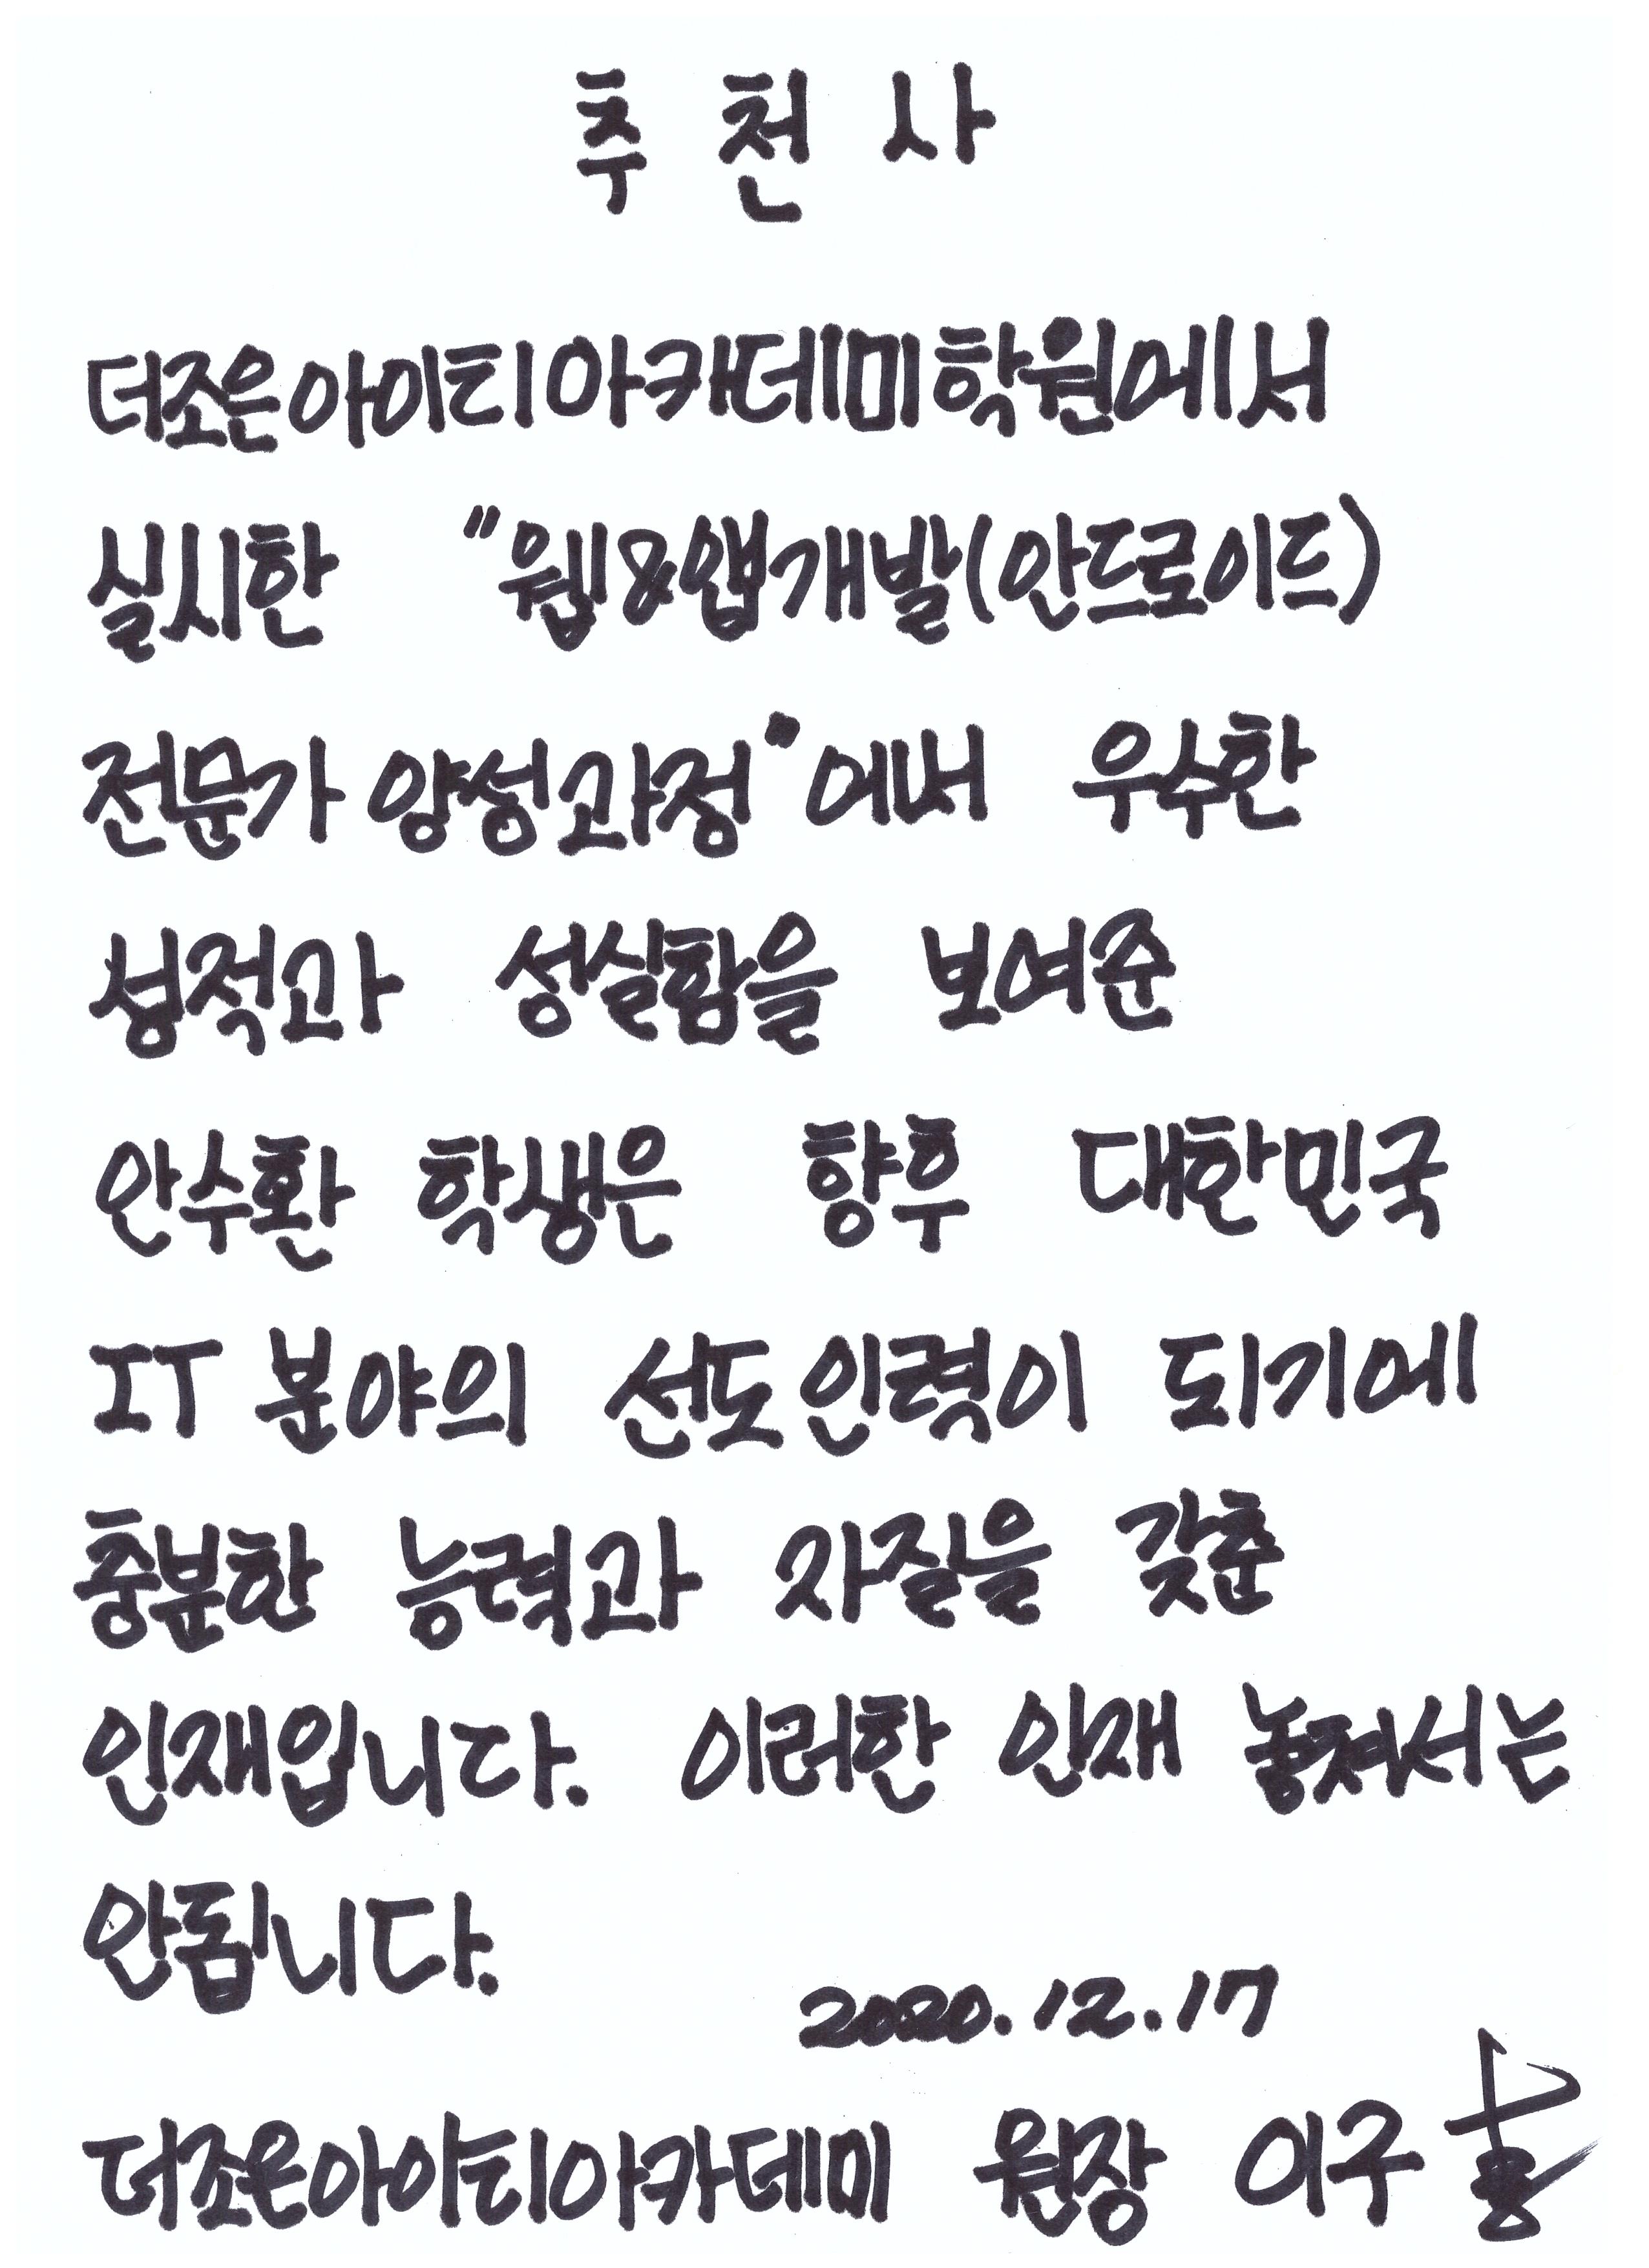 추 천 사
더조은아이티아카데미학원에서
실시한 "웹&앱개발(안드로이드)
전문가 양성과정"에서 우수한
성적과 성실함을 보여준
안수환 학생은 향후 대한민국
IT 분야의 선도인력이 되기에
충분한 능력과 자질을 갖춘
인재입니다. 이러한 인재 놓쳐서는
안됩니다.
2020.12.17
더조은아이티아카데미 원장 이구